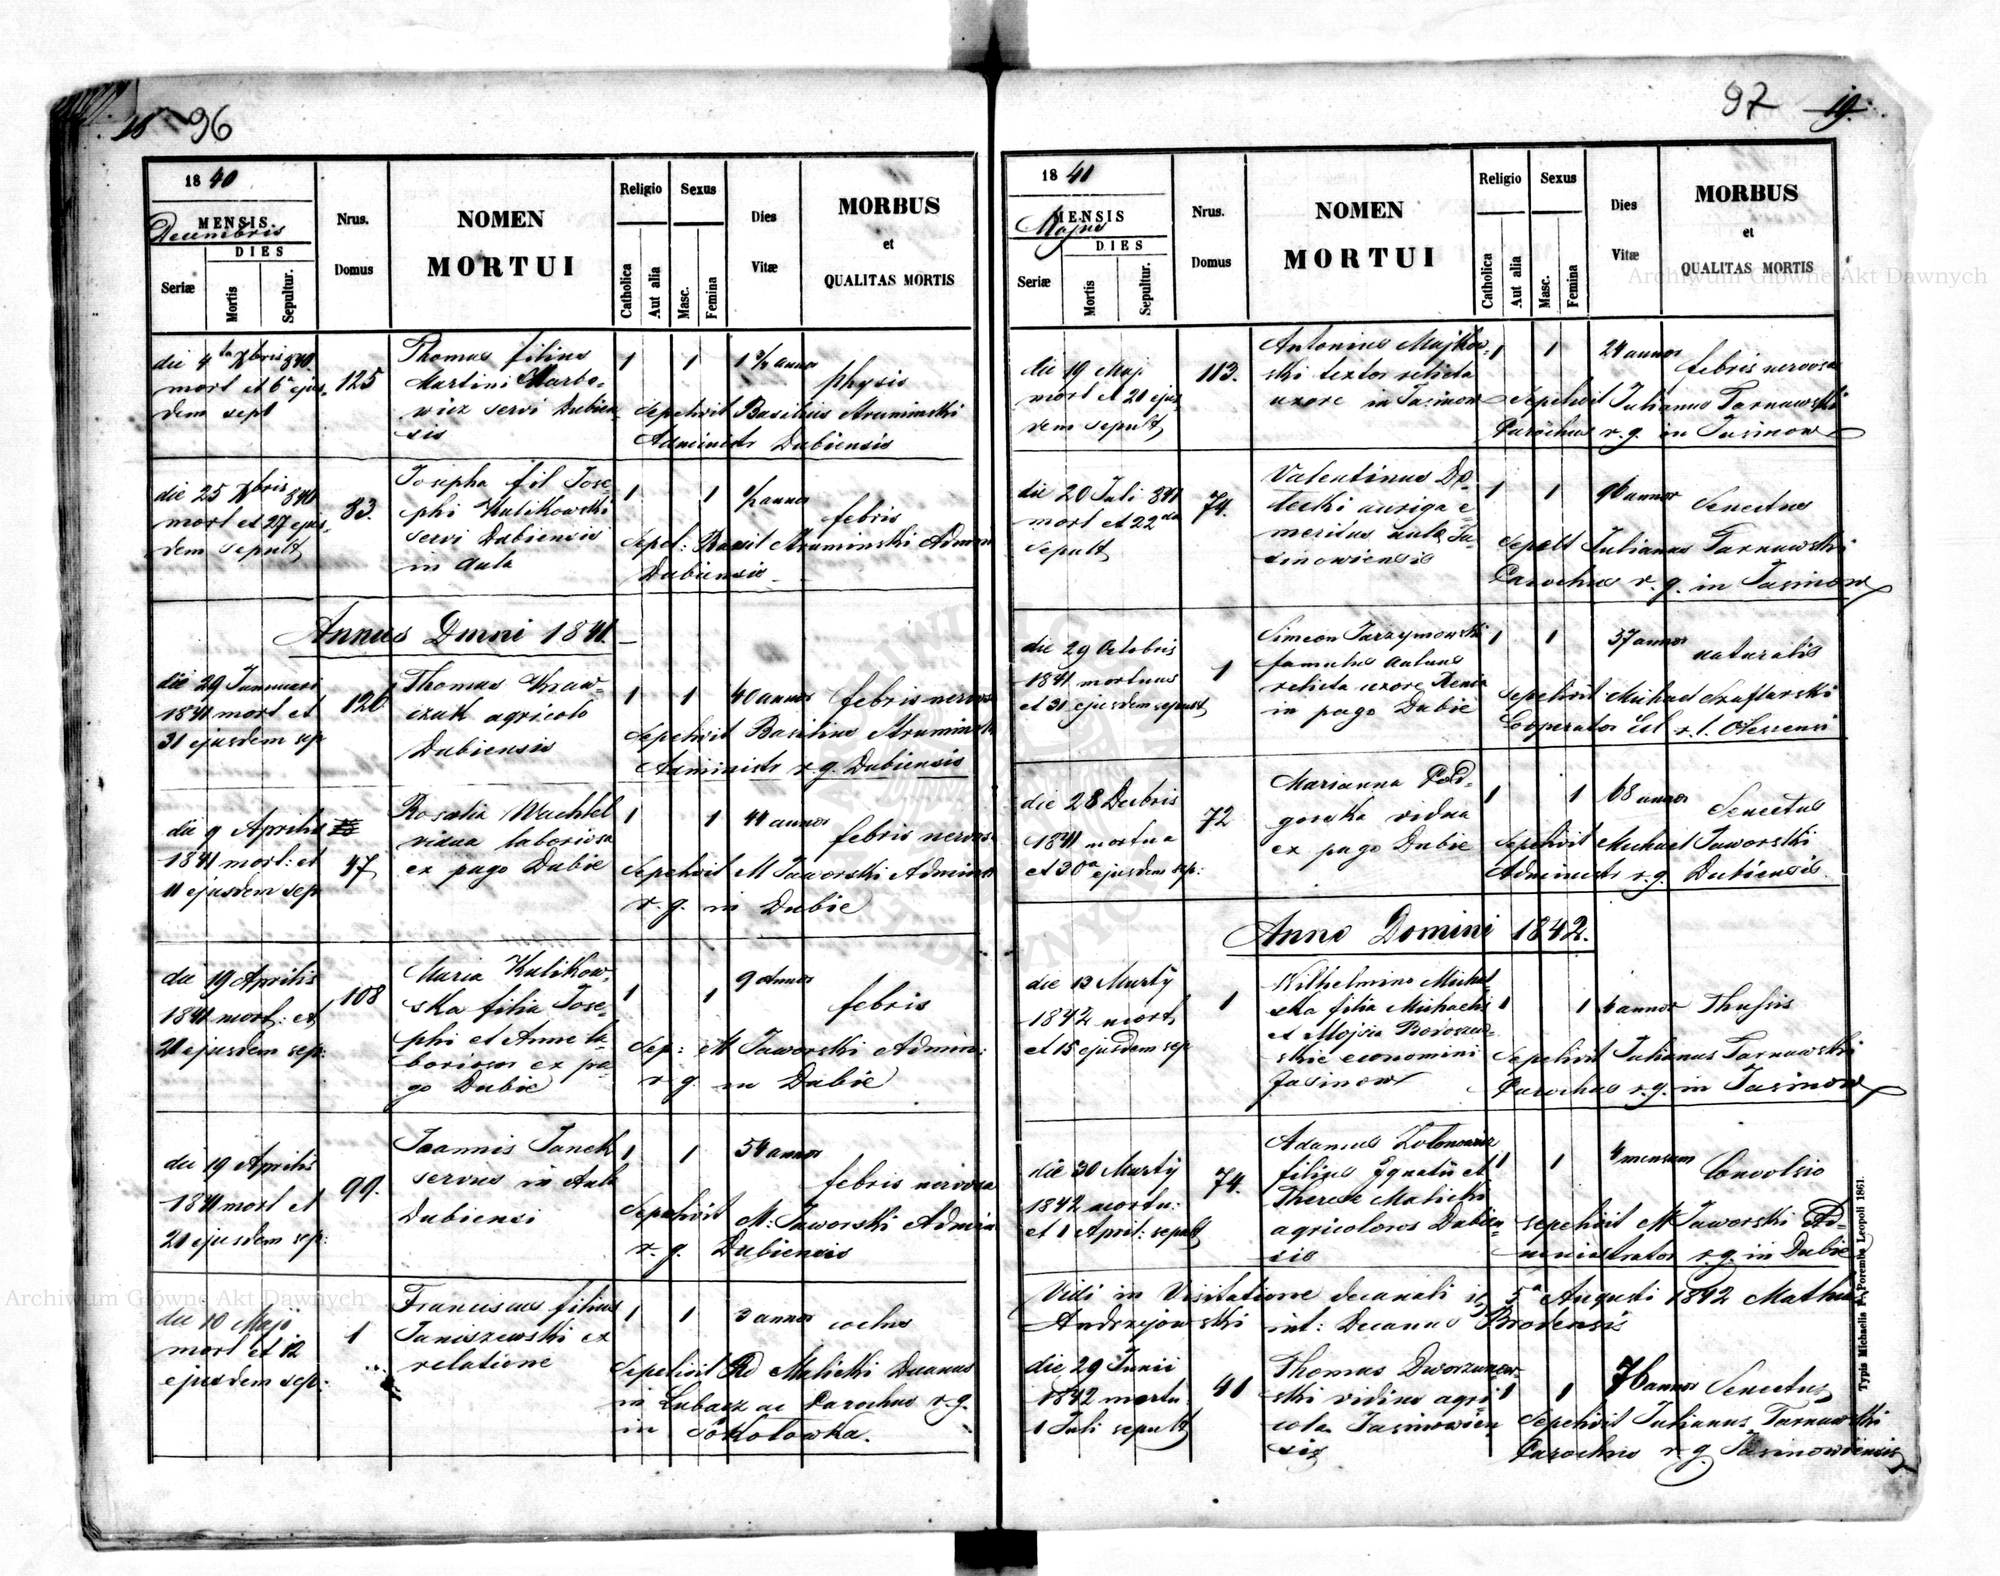 96
1840
MENSIS
Decembris
DIES
Seriæ
Mortis
Sepultur.
Nrus.
Domus
NOMEN
MORTUI
Religio
Catholica
Aut alia
Sexus
Masc.
Femina
Dies
Vitæ
MORBUS
et
QUALITAS MORTIS
die 4ta Xbris 840
mort et 6a ejus-
dem sept
125
Thomas filius
Martini
wicz servi Dubien
sis
1
1
1 1/2 annor
physis
Sepelivit Basilius Struminski
Administr Dubiensis
die 25 Xbris 840
mort et 27 ejus-
dem sepult
83.
Josepha fil Jose-
phi Kulikowski
servi Dubiensis
in aula
1
1
1/2 annor
febris
Sepel: Basil Struminski Admin
Dubiensis
Annus Domni 1841.
die 29 Januari
1841 mort et
31 ejusdem sep
126
Thomas Kraw-
czuk agricola
Dubiensis
1
1
40 annor
febris nervosa
Sepelivit Basilius Strumins
Administr r. g. Dubiensis
die 9 Aprilis
1841 mort: et
11 ejusdem sep
47
Rosalia Wachtel
vidua laboriosa
ex pago Dubie
1
1
44 annor
febris nervos
Sepelivit M Jaworski Administ
r. g. in Dubie
die 19 Aprilis
1841 mort: et
21 ejusdem sep:
108
Maria Kulikow-
ska filia Jose-
phi et Anne la-
borioson ex pa-
go Dubie
1
1
9 annor
febris
Sep: M Jaworski Admin:
r g. in Dubie
die 19 Aprilis
1841 mort et
21 ejusdem sep:
99.
Joannis Janek
servus in Aula
Dubiensi
1
1
54 annor
febris nervosa
Sepelivit M: Jaworski Admin
r. g. Dubiensis
die 10 Maji
mort et 12
ejusdem sep:
1
Franciscus filius
Janiszewski ex
relatione
1
1
3 annor
Sepelivit Rd Malicki Decanus
in Lubacz ac Parochus r. g.
in Sokolowka.
97
19.
1841
MENSIS
Majus
DIES
Seriæ
Mortis
Sepultur.
Nrus.
Domus
NOMEN
MORTUI
Religio
Catholica
Aut alia
Sexus
Masc.
Femina
Dies
Vitæ
MORBUS
et
QUALITAS MORTIS
die 19 Maj
mort et 21 ejus
dem sepult
113.
Antonius Majkow-
ski textor relicta
uxore in Jasinow
1
1
24 annor
febris nervosa
Sepelivit Julianus Tarnawski
Parochus r. g. in Jasinow
die 20 Juli 841
mort et 22da
sepult
74.
Valentinus Do-
lecki auriga e-
meritus aula Ja-
sinowiensis
1
1
96 annor
Senectus
Sepelt Julianus Tarnawski
Parochus r. g. in Jasinow
die 29 Octobris
1841 mortuus
et 31 ejusdem sepult
1
Simeon Jarzymowski
famulus aulane
relicta uxore Xenia
in pago Dubie
1
1
37 annor
naturalis
Sepelivit Michael Szaflarski
Cooperator Ecl r. l. Olescensi
die 28 Decbris
1841 mortua
et 30a ejusdem sep:
72
Marianna Pod-
gorska vidua
ex pago Dubie
1
1
68 annor
Senectus
Sepelivit Michael Jaworski
Administr r. g. Dubiensis.
Anno Domini 1842.
die 13 Martÿ
1842 mort
et 15 ejusdem sep
1
Wilhelmina Michal-
ska filia Michaelis
et
skie economini
Jasinow
1
1
4 annor
Thussis
Sepelivit Julianus Tarnawski
Parochus r. g. in Jasinow
die 30 Martÿ
1842 mortu:
et 1 April: sepult
74.
Adamus
filius Ignatii et
Therese Malicki
agricoloros Dubien-
sis
1
1
4 mensum
Convolsio
sepelivit M Jaworski Ad-
ministrator r. g. in Dubie
Vidi in Visitatione decanali 5a Augusti 1842 Mathias
Andrzejowski int: Decanus Brodensis
die 29 Junii
1842 mortu
1 Juli sepult
41
Thomas Dworzanow-
ski vidius agri-
cola Jasinowien
sis
1
1
76 annor
Senectus
Sepelivit Julianus Tarnawski
Parochus r. g. Jasinowiensis
Typis Michaelis F. Poremba Leopoli 1861.
Archiwum Główne Akt Dawnych
Archiwum Główne Akt Dawnych